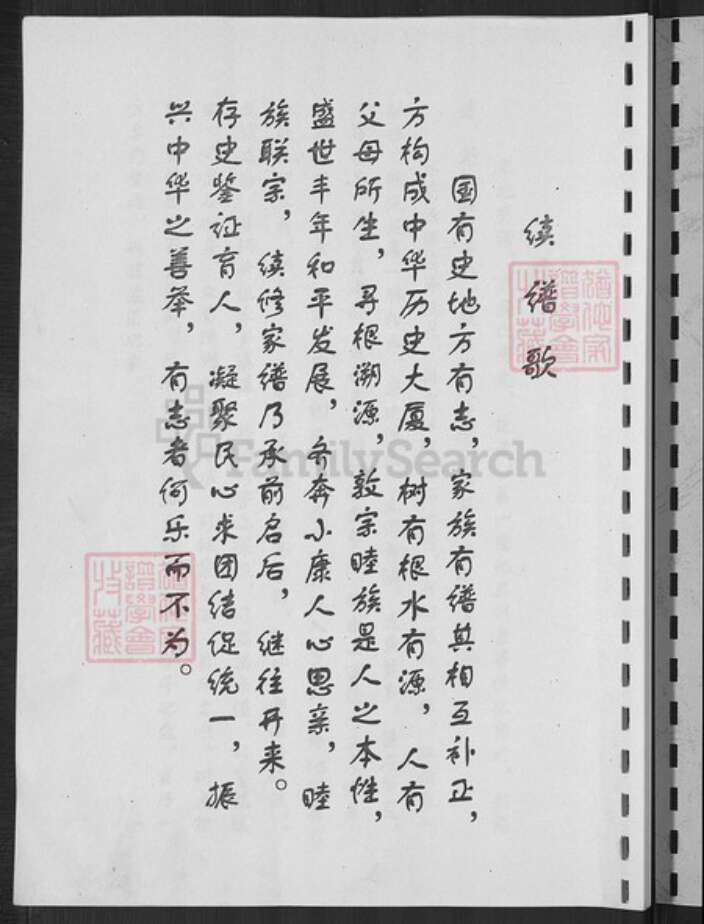 续谱歌
国有史地方有志，家族有谱其相互补正，
方构成中华历史大厦，树有根水有源，人有
父母所生，寻根溯源，敦宗睦族是人之本性，
盛世丰年和平发展，齐奔小康人心思亲，睦
族联宗，续修家谱乃承前启后，继往开来。
存史鉴证育人，凝聚民心求团结促统一，振
兴中华之善举，有志者何乐而不为。
FamilySearch